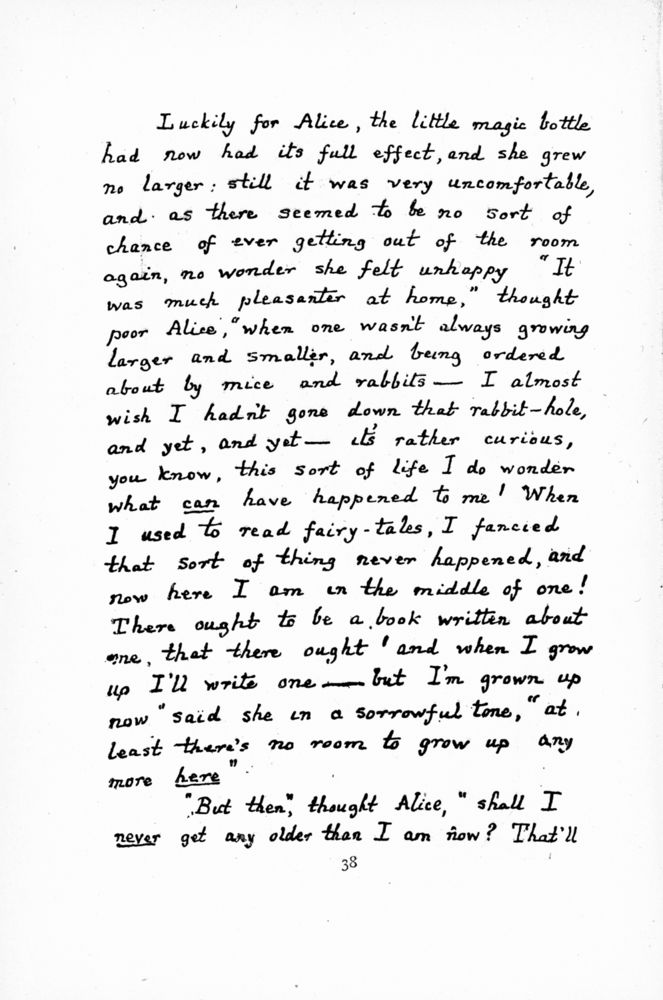 Luckily for Alice, the little magic bottle
had now had its full effect, and she grew
no larger: still it was very uncomfortable,
and as there seemed to be no sort of
chance of ever getting out of the room
again, no wonder she felt unhappy "It
was much pleasanter at home," thought
poor Alice, "when one wasn't always growing
larger and smaller, and being ordered
about by mice and rabbits — I almost
wish I hadn't gone down that rabbit-hole,
and yet, and yet — it's rather curious,
you know, this sort of life I do wonder
what can have happened to me! When
I used to read fairy-tales, I fancied
that sort of thing never happened, and
now here I am in the middle of one!
There ought to be a book written about
me, that there ought! and when I grow
up I'll write one — but I'm grown up
now" said she in a sorrowful tone, "at
least there's no room to grow up any
more here"
"But then", thought Alice, "shall I
never get any older than I am now? That'll
38